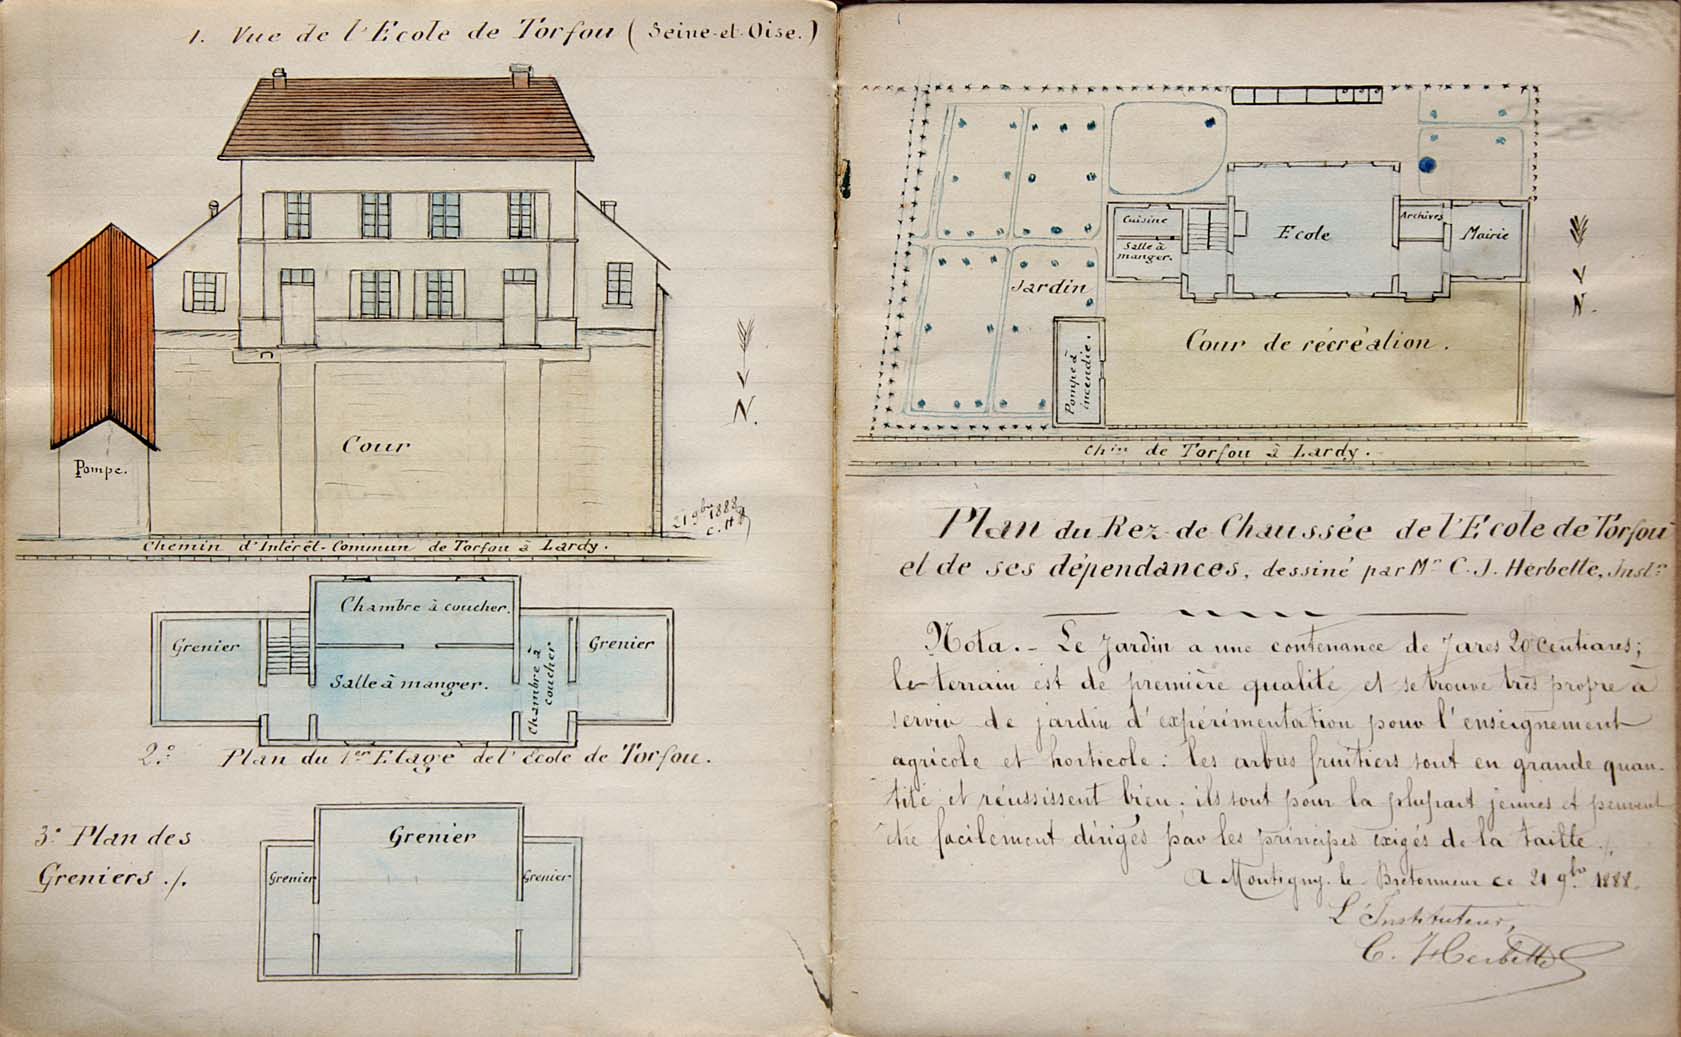 1. Vue de l'Ecole de Torfou (Seine-et-Oise.)
Pompe.
Cour
N.
21 9bre 1888
C. H
Chemin d'Intérêt-Commun de Torfou à Lardy.
Chambre à coucher.
Grenier
Salle à manger.
Chambre à
coucher
Grenier
2.º Plan du 1er Etage de l'Ecole de Torfou.
3.º Plan des
Greniers ./.
Grenier
Grenier
Grenier
Cuisine
Salle à
manger.
Ecole
Archives
Mairie
N.
Jardin
Pompe à
incendie.
Cour de récréation.
Chin de Torfou à Lardy.
Plan du Rez-de-Chaussée de l'Ecole de Torfou
et de ses dépendances, dessiné par Mr C. J. Herbette, Instr
Nota. - Le Jardin a une contenance de 7 ares 20 centiares;
le terrain est de première qualité et se trouve très propre à
servir de jardin d'expérimentation pour l'enseignement
agricole et horticole : les arbres fruitiers sont en grande quan-
tité et réussissent bien; ils sont pour la plupart jeunes et peuvent
être facilement dirigés par les principes exigés de la taille ./.
A Montigny-le-Bretonneux ce 21 9bre 1888.
L'Instituteur,
C. Herbette